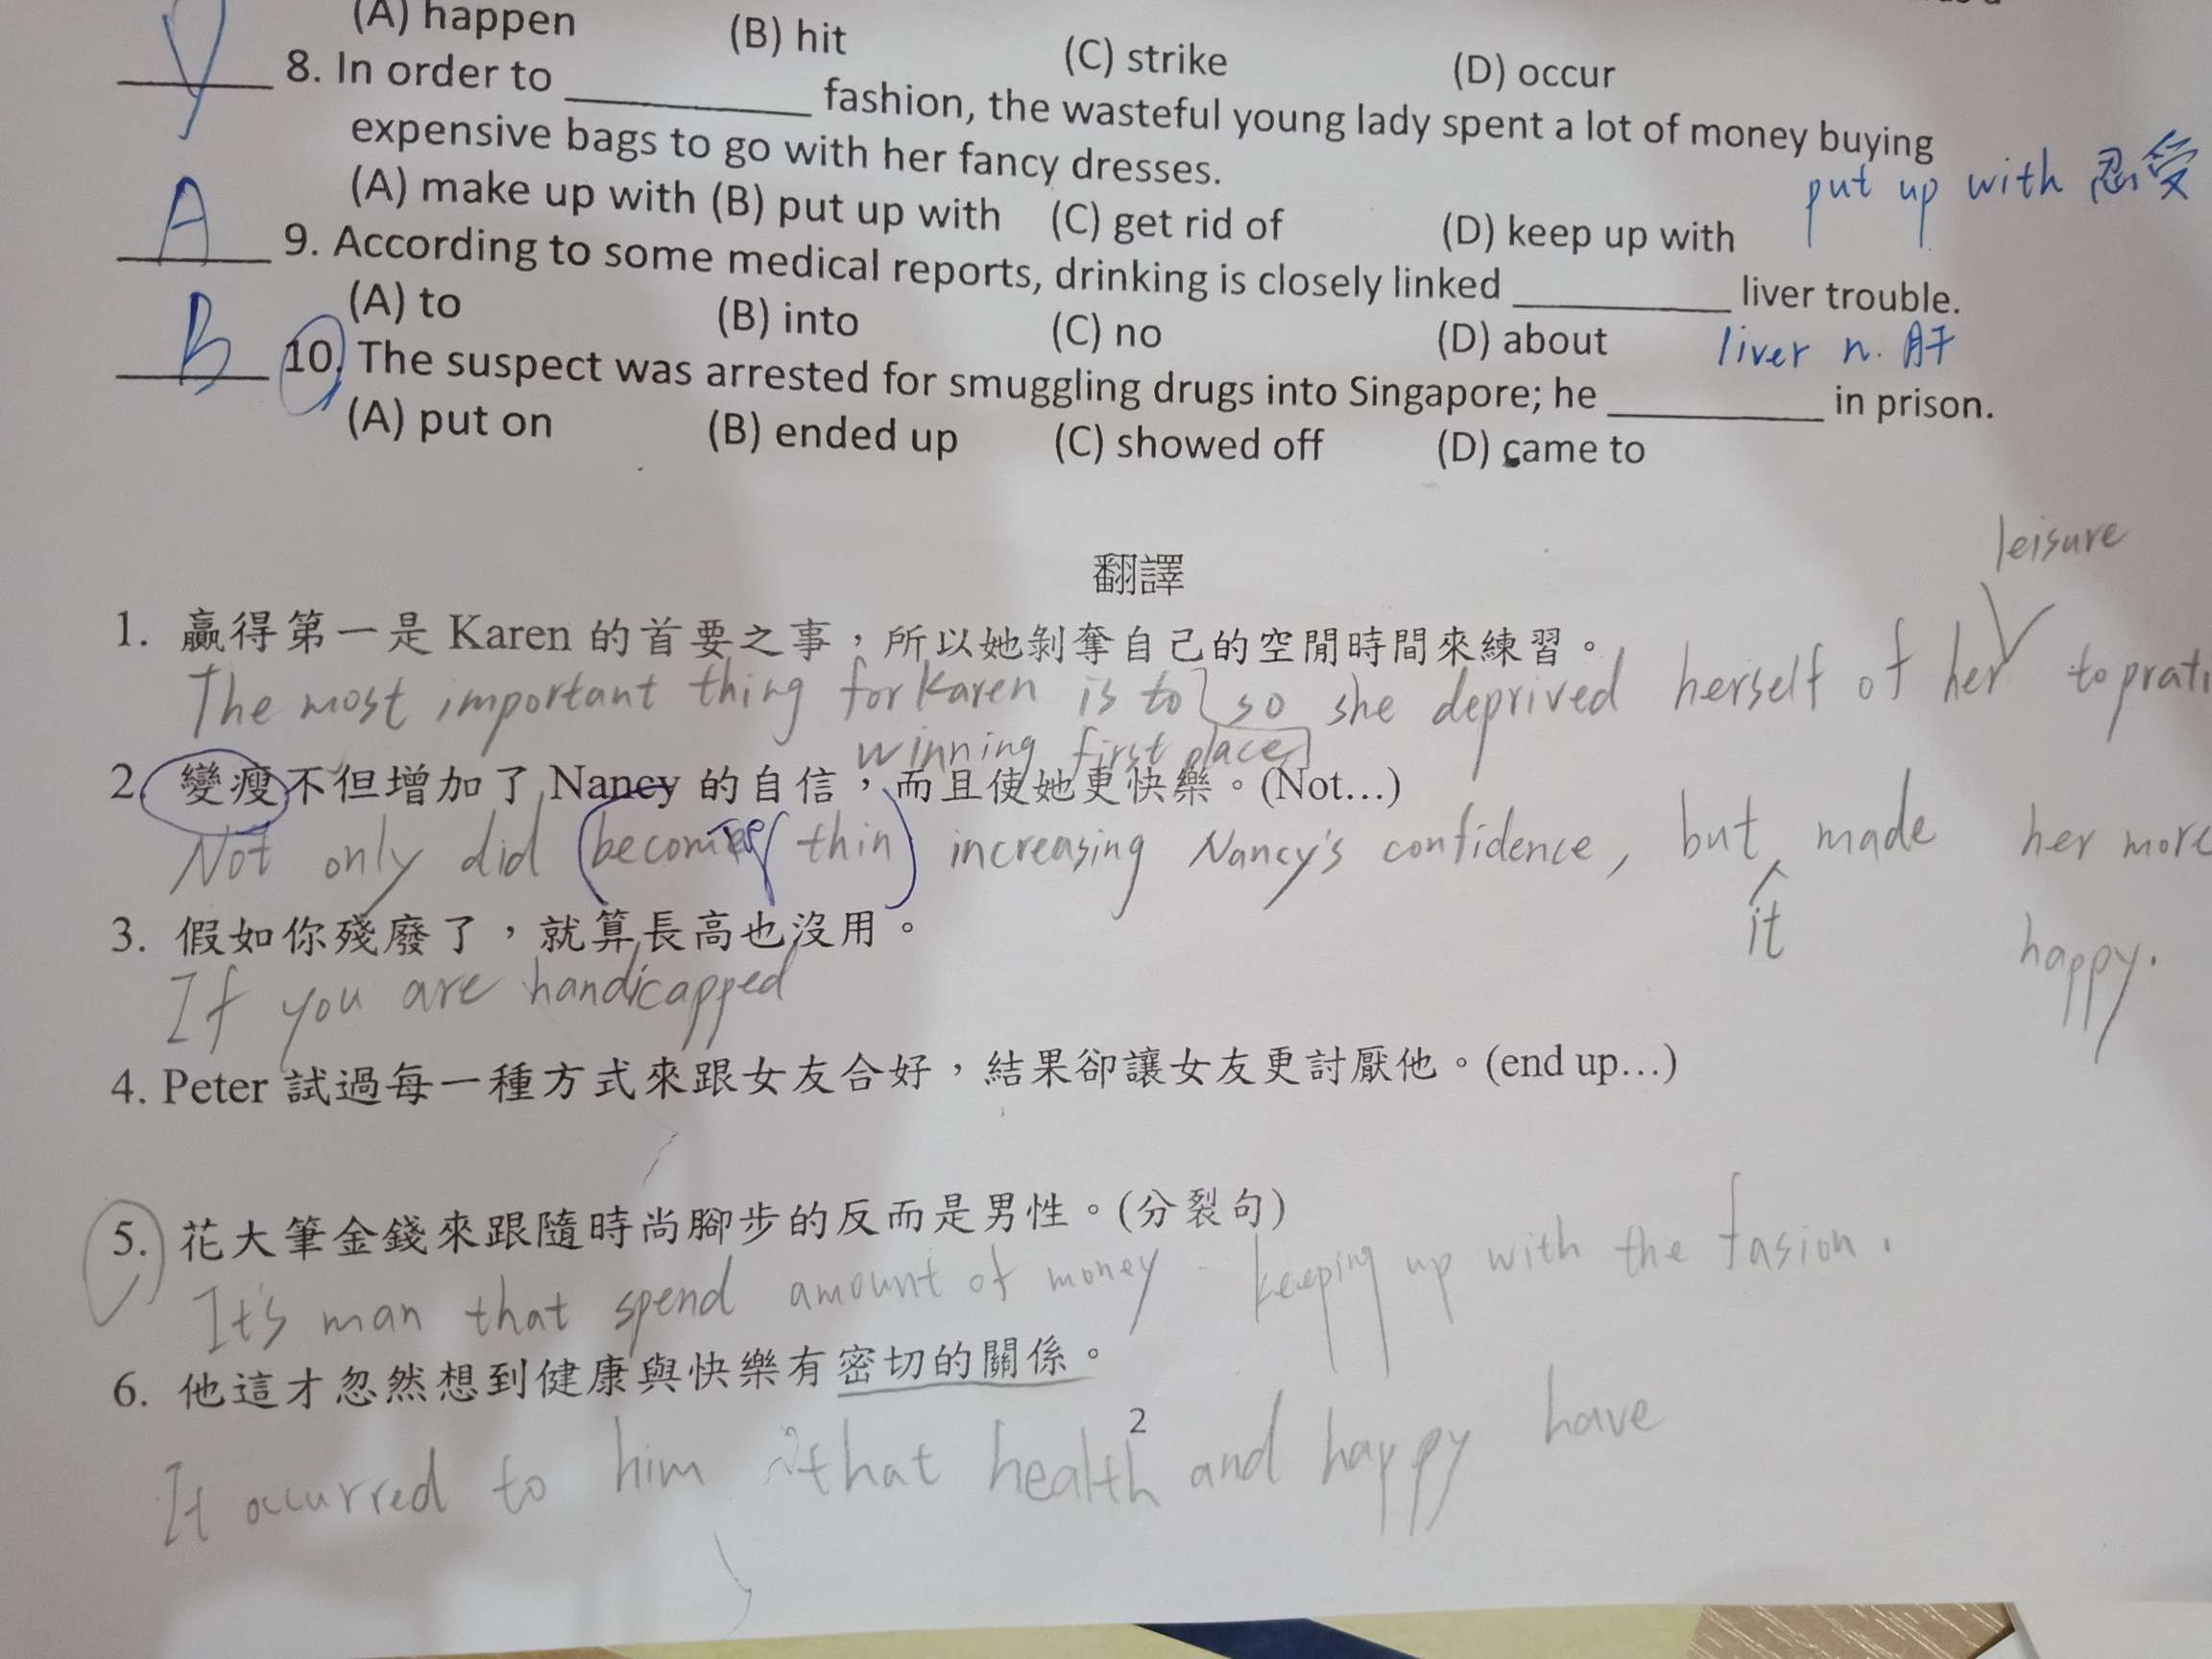 (A) happen (B) hit (C) strike (D) occur
8. In order to ____ fashion, the wasteful young lady spent a lot of money buying
expensive bags to go with her fancy dresses.
put up with 忍受
(A) make up with (B) put up with (C) get rid of (D) keep up with
A 9. According to some medical reports, drinking is closely linked ____ liver trouble.
(A) to (B) into (C) no (D) about
liver n. 肝
B 10. The suspect was arrested for smuggling drugs into Singapore; he ____ in prison.
(A) put on (B) ended up (C) showed off (D) came to
翻譯
leisure
1. 贏得第一是 Karen 的首要之事，所以她剝奪自己的空閒時間來練習。
The most important thing for Karen is to so she deprived herself of her to prati
winning first place
2. 變瘦不但增加了 Nancy 的自信，而且使她更快樂。(Not…)
Not only did becoming thin increasing Nancy's confidence, but made her more
it
happy.
3. 假如你殘廢了，就算長高也沒用。
If you are handicapped
4. Peter 試過每一種方式來跟女友合好，結果卻讓女友更討厭他。(end up…)
5. 花大筆金錢來跟隨時尚腳步的反而是男性。(分裂句)
It's man that spend amount of money keeping up with the fasion.
6. 他這才忽然想到健康與快樂有密切的關係。
2
It ocurred to him that health and happy have